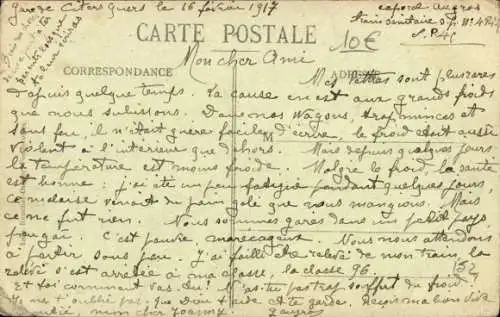 Gare de Citers Quers le 16 février 1917
caporal
train sanitaire
S.P. 4
CARTE POSTALE
10€
CORRESPONDANCE
Mon cher Ami
Mes lettres sont plus rares
depuis quelque temps. La cause en est aux grands froids
que nous subissons. Dans nos wagons, trop minces et
sans feu, il n'était guère facile d'écrire, le froid était aussi
violent à l'intérieur que dehors. Mais depuis quelques jours
la température est moins froide. Malgré le froid, la santé
est bonne; j'ai été un peu fatigué pendant quelques jours
ce malaise venait du pain gelé que nous mangions. Mais
ce ne fut rien. Nous sommes garés dans un petit pays
C'est pauvre, marécageux. Nous nous attendons
à partir sous peu. J'ai failli être relevé de mon train, la
relève s'est arrêtée à ma classe, la classe 96.
52
Et toi comment vas-tu? N'as-tu pas trop souffert du froid.
Je ne t'oublie pas que Dieu t'aide et te garde. Reçois ma bien vive
mon cher